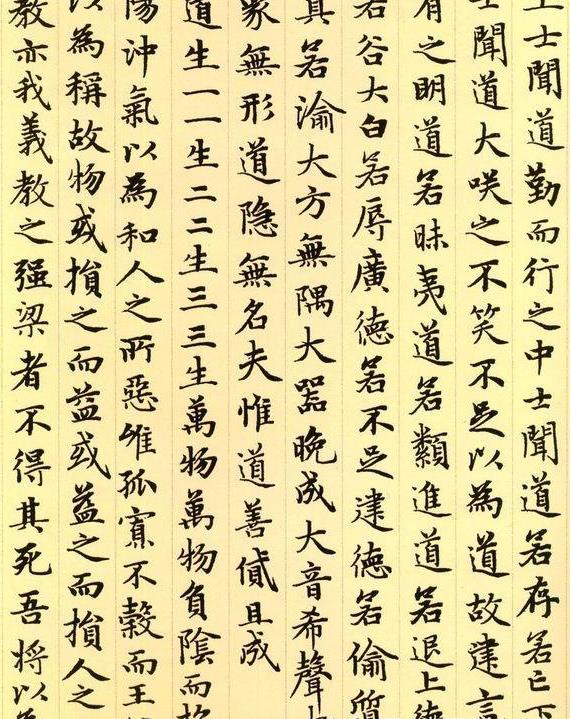 上士聞道勤而行之中士聞道若存若亡下
士聞道大咲之不笑不足以為道故建言
有之明道若昧夷道若類進道若退上德
若谷大白若辱廣德若不足建德若偷質
真若渝大方無隅大器晚成大音希聲大
象無形道隐無名夫惟道善貸且成
道生一一生二二生三三生萬物萬物負陰而抱
陽沖氣以為和人之所惡惟孤寡不穀而王
以為稱故物或損之而益或益之而損人之
教亦我義教之强梁者不得其死吾将以為